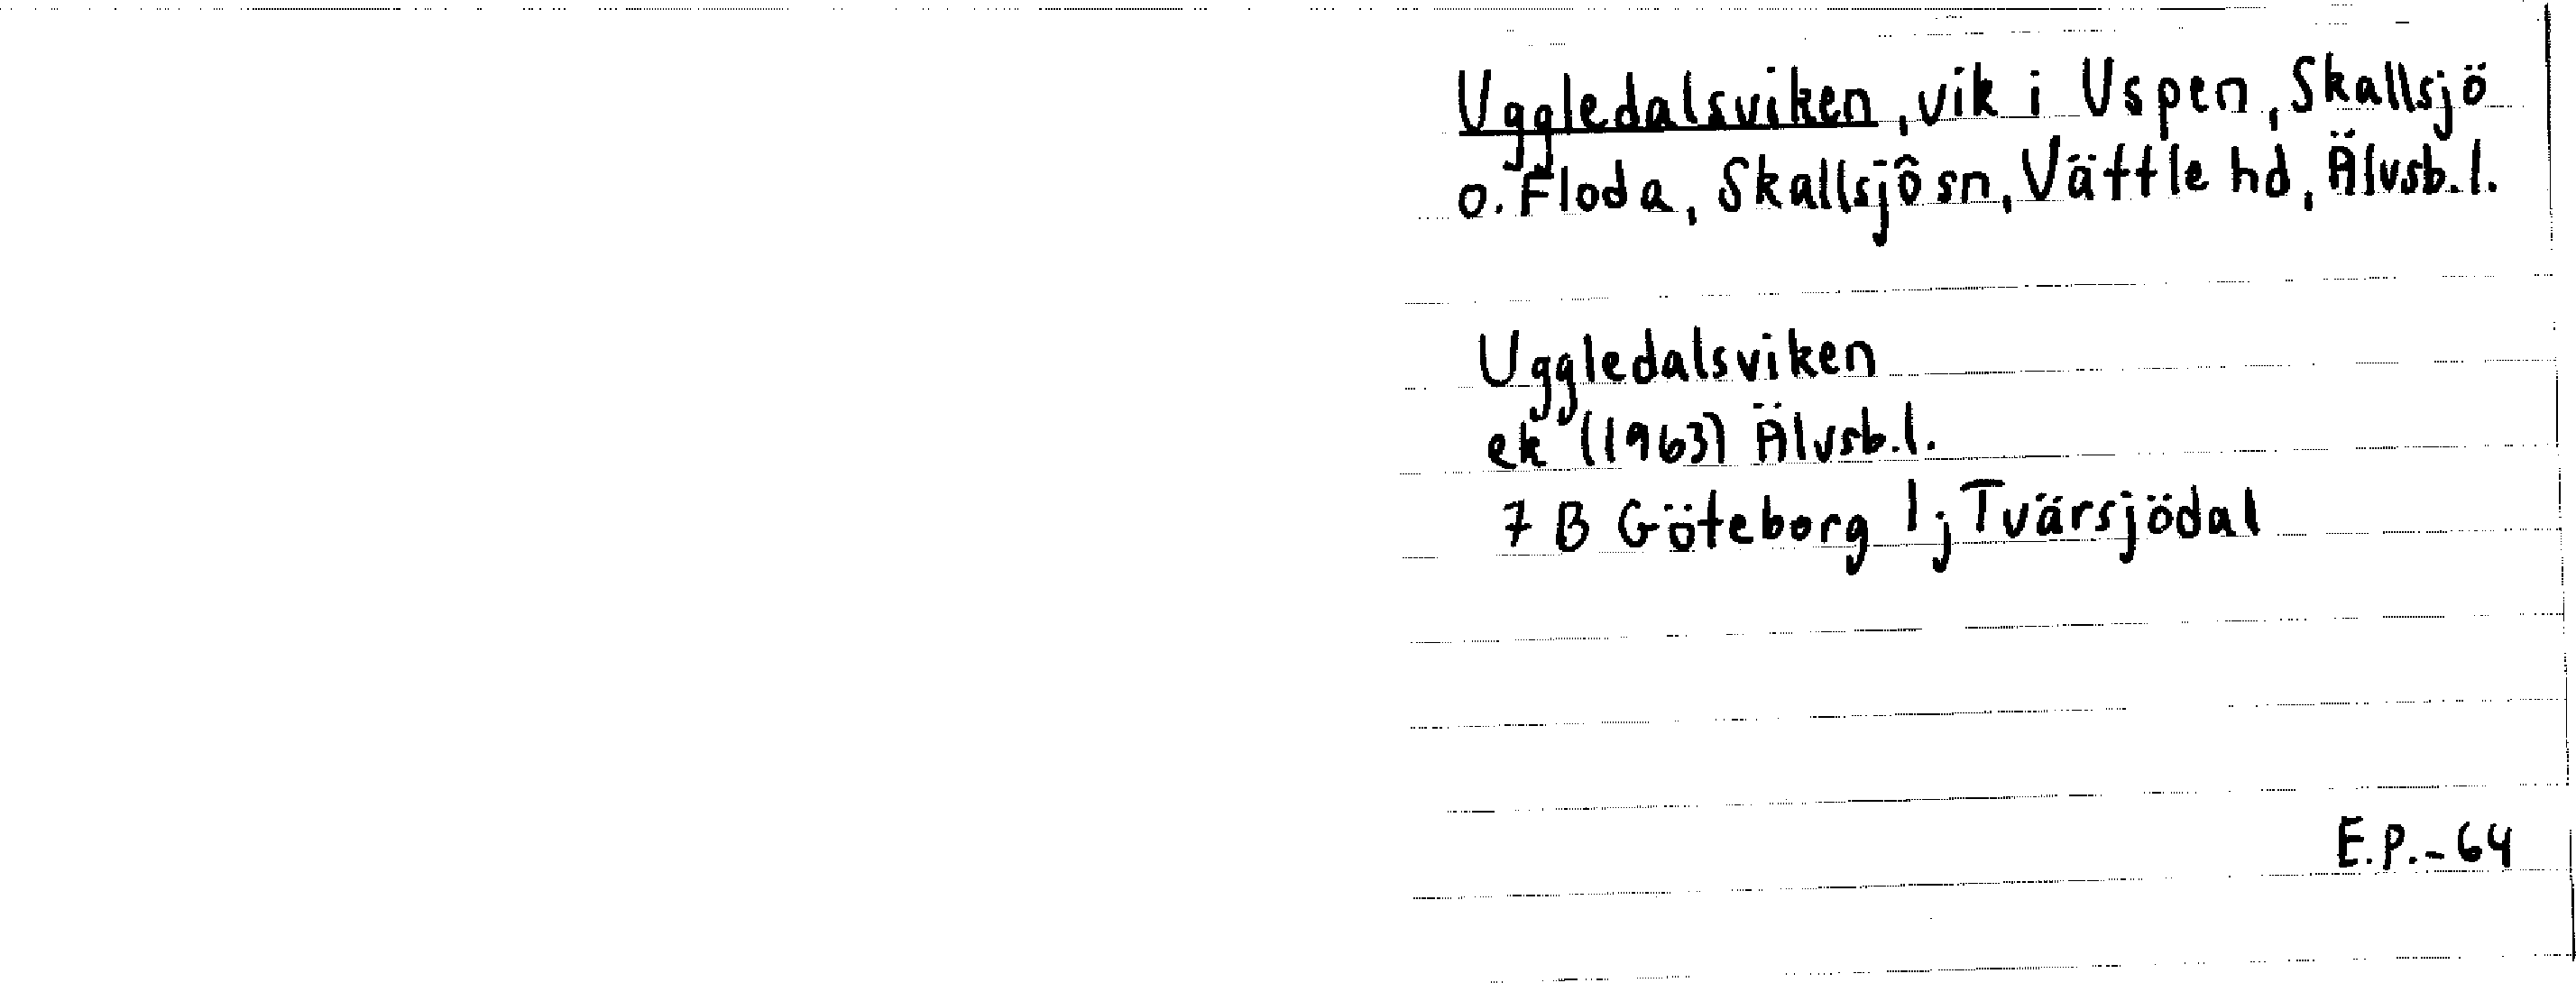 Uggledalsviken, vik i Uspen, Skallsjö
o. Floda, Skallsjö sn, Vättle hd, Älvsb. l.
Uggledalsviken
ek (1963) Älvsb. l.
7 B Göteborg 1j Tvärsjödal
E.P.-64